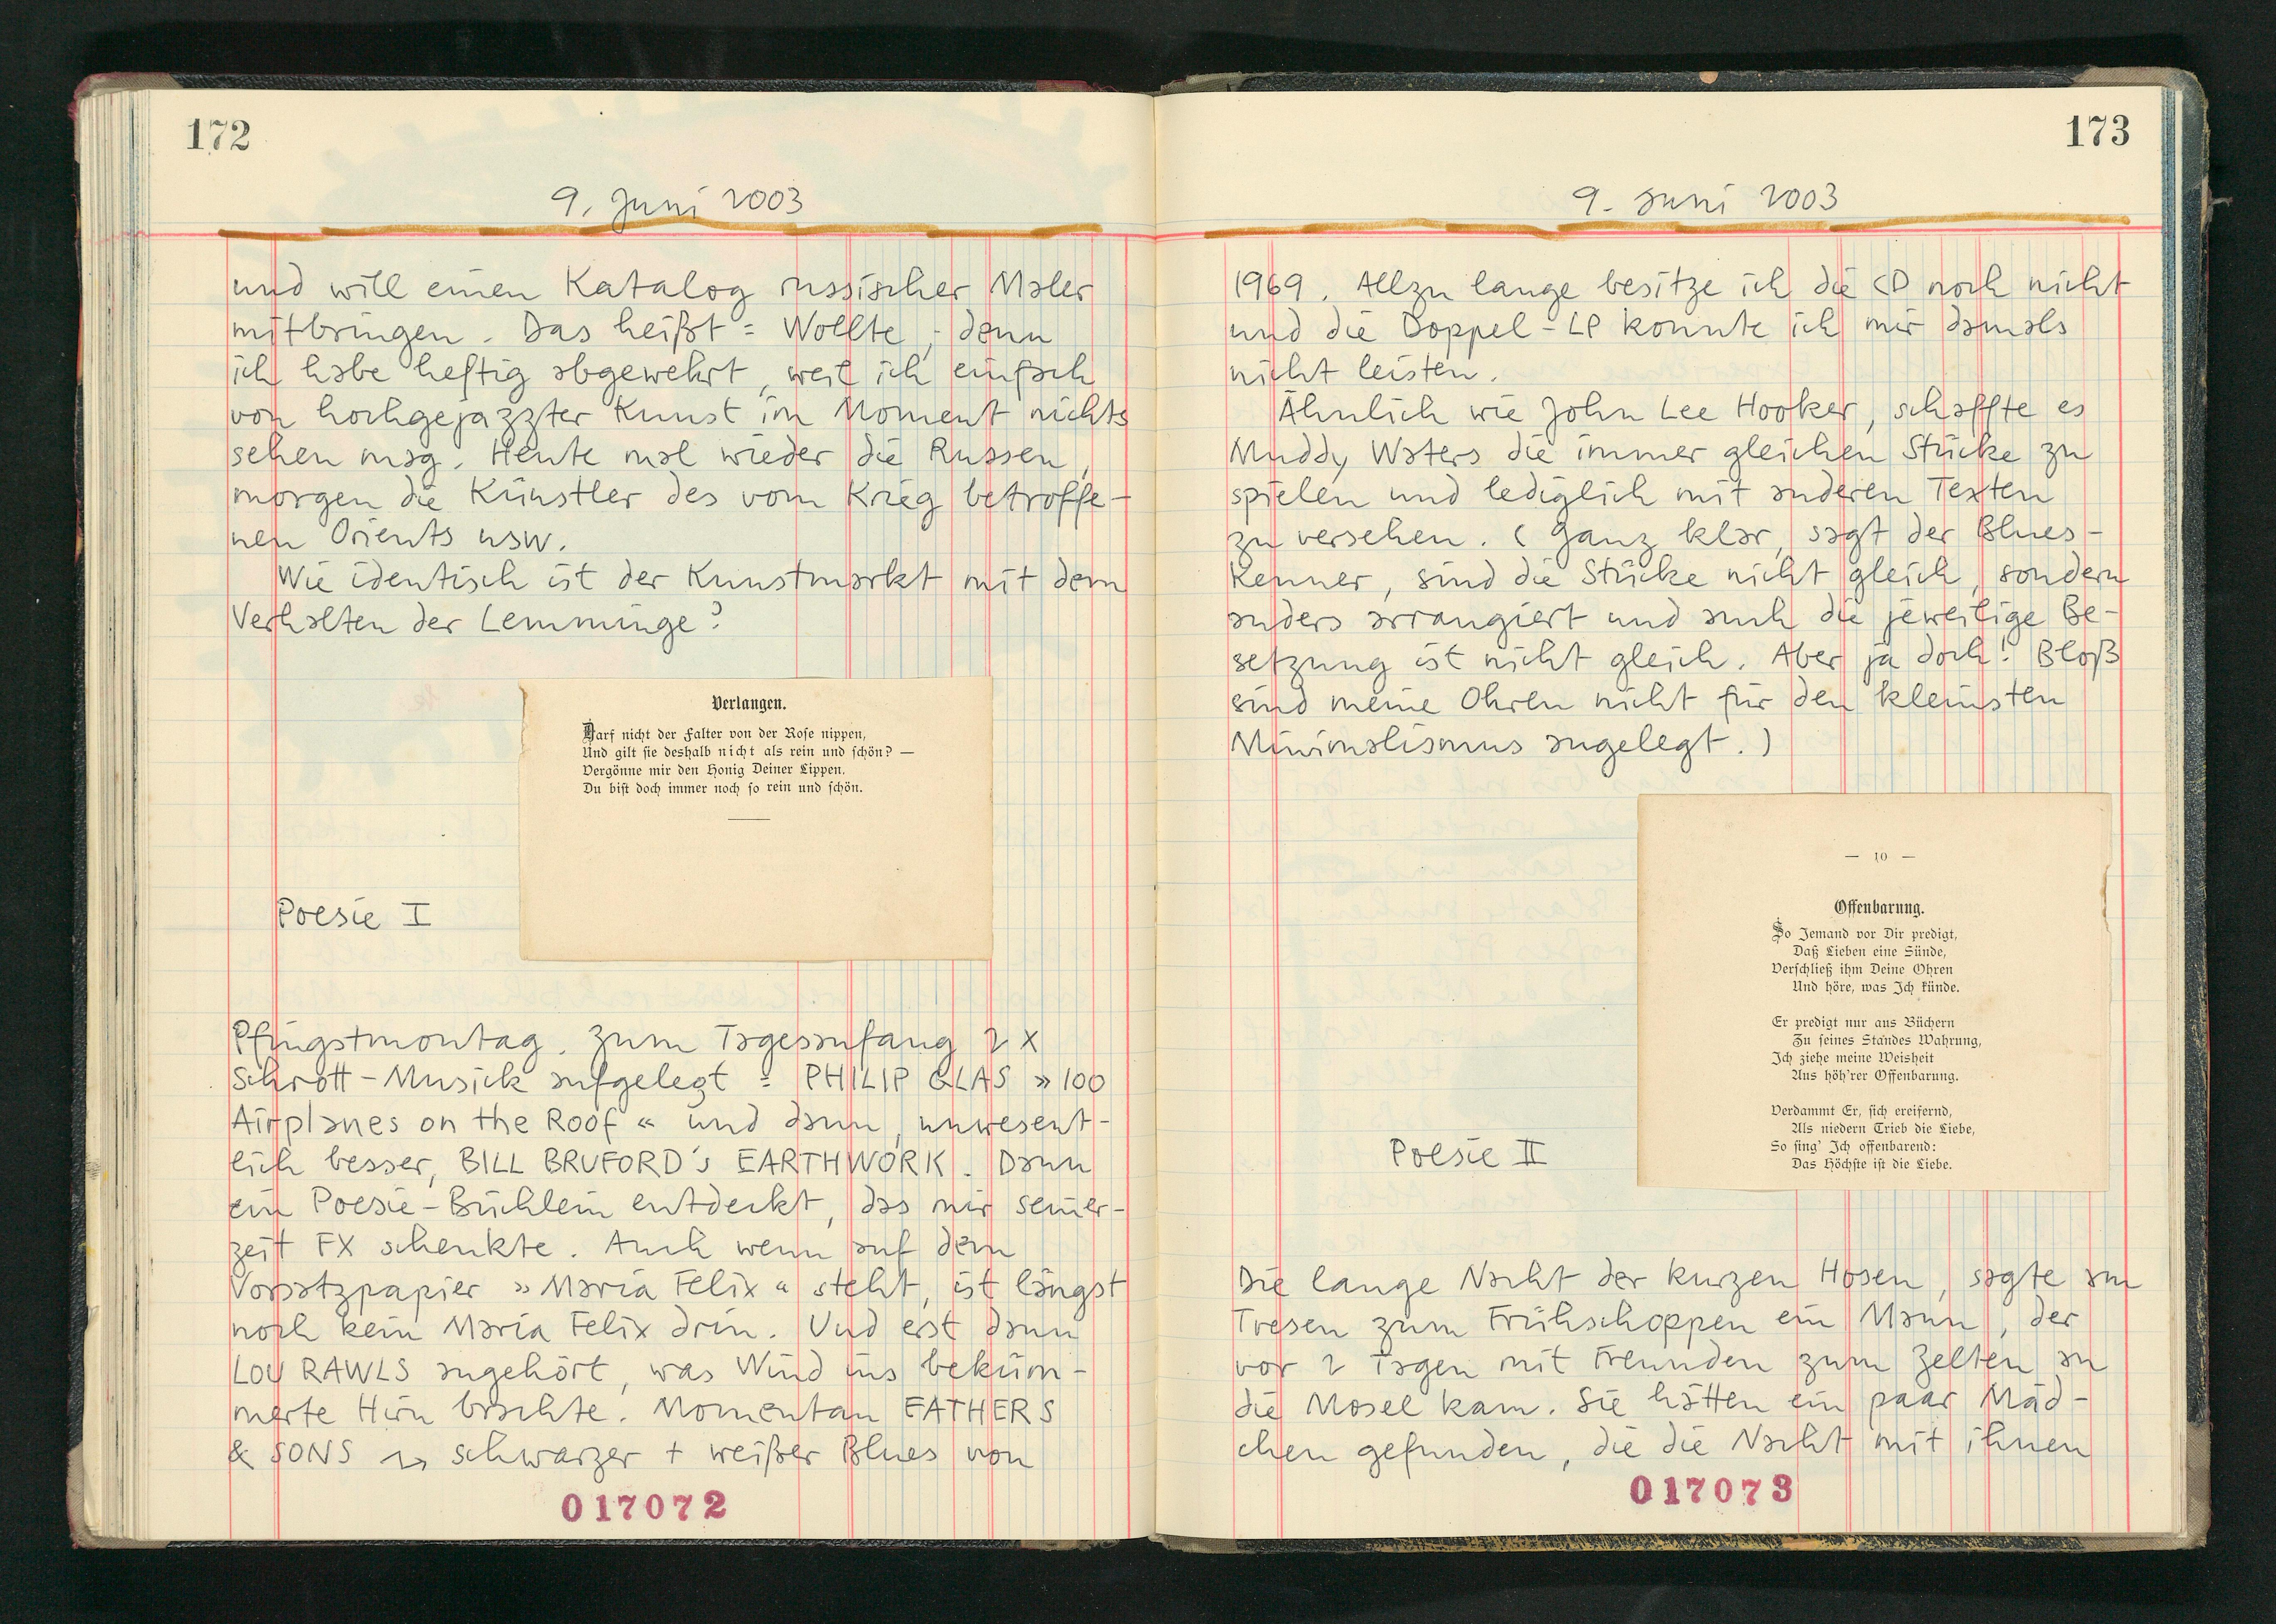 172
9. Juni 2003
und will einen Katalog russischer Maler
mitbringen. Das heißt = Wollte, denn
ich habe heftig abgewehrt, weil ich einfach
von hochgejazzter Kunst im Moment nichts
sehen mag. Heute mal wieder die Russen,
morgen die Künstler des vom Krieg betroffe-
nen Orients usw.
Wie identisch ist der Kunstmarkt mit dem
Verhalten der Lemminge?
Verlangen.
Darf nicht der Falter von der Rose nippen,
Und gilt sie deshalb nicht als rein und schön? —
Vergönne mir den Honig Deiner Lippen.
Du bist doch immer noch so rein und schön.
Poesie I
Pfingstmontag. Zum Tagesanfang 2 x
Schrott-Musick aufgelegt = PHILIP GLAS »100
Airplanes on the Roof« und dann, unwesent-
lich besser, BILL BRUFORD's EARTHWORK. Dann
ein Poesie-Büchlein entdeckt, das mir seiner-
zeit FX schenkte. Auch wenn auf dem
Vorsatzpapier »Maria Felix« steht, ist längst
noch kein Maria Felix drin. Und erst dann
LOU RAWLS angehört, was Wind ins beküm-
merte Hirn brachte. Momentan FATHERS
& SONS → schwarzer + weißer Blues von
017072
173
9. Juni 2003
1969. Allzu lange besitze ich die CD noch nicht
und die Doppel-LP konnte ich mir damals
nicht leisten.
Ähnlich wie John Lee Hooker, schaffte es
Muddy Waters die immer gleichen Stücke zu
spielen und lediglich mit anderen Texten
zu versehen. (Ganz klar, sagt der Blues-
Kenner, sind die Stücke nicht gleich, sondern
anders arrangiert und auch die jeweilige Be-
setzung ist nicht gleich. Aber ja doch! Bloß
sind meine Ohren nicht für den kleinsten
Minimalismus angelegt.)
— 10 —
Offenbarung.
So Jemand vor Dir predigt,
Daß Lieben eine Sünde,
Verschließ ihm Deine Ohren
Und höre, was Ich künde.
Er predigt nur aus Büchern
Zu seines Standes Wahrung,
Ich ziehe meine Weisheit
Aus höh'rer Offenbarung.
Verdammt Er, sich ereifernd,
Als niedern Trieb die Liebe,
So sing' Ich offenbarend:
Das Höchste ist die Liebe.
Poesie II
Die lange Nacht der kurzen Hosen, sagte am
Tresen zum Frühschoppen ein Mann, der
vor 2 Tagen mit Freunden zum Zelten an
die Mosel kam. Sie hätten ein paar Mäd-
chen gefunden, die die Nacht mit ihnen
017073